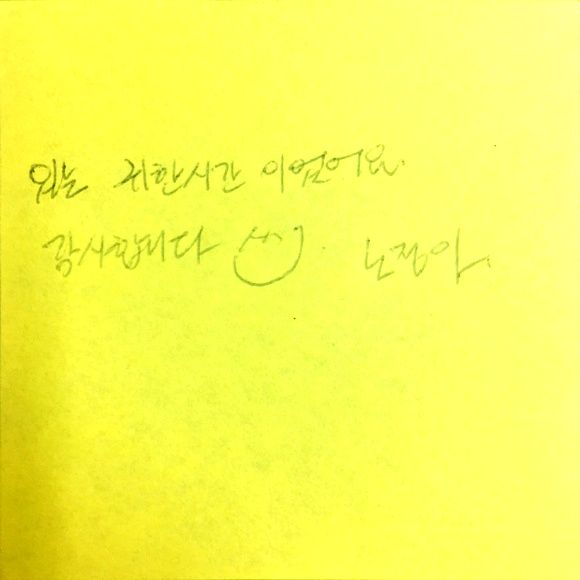 귀한시간 이었어요.
감사합니다 노정아.